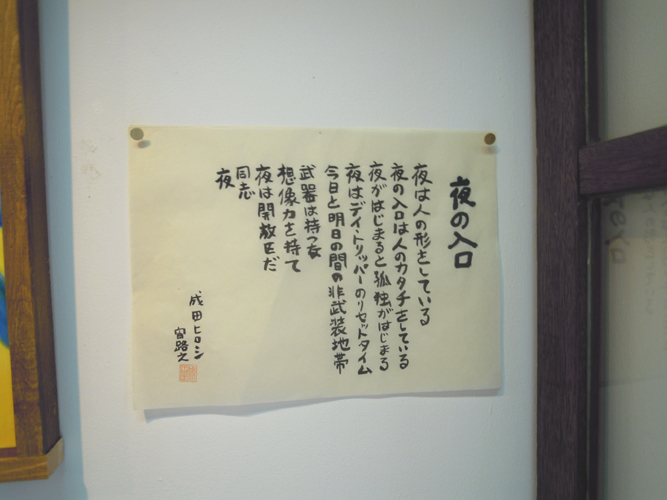 夜の入口
夜は人の形をしている
夜の入口は人のカタチをしている
夜がはじまると孤独がはじまる
夜はデイ・トリッパーのリセットタイム
今日と明日の間の非武装地帯
武器は持つな
想像力を持て
夜は開放区だ
同志
夜
成田ヒロシ